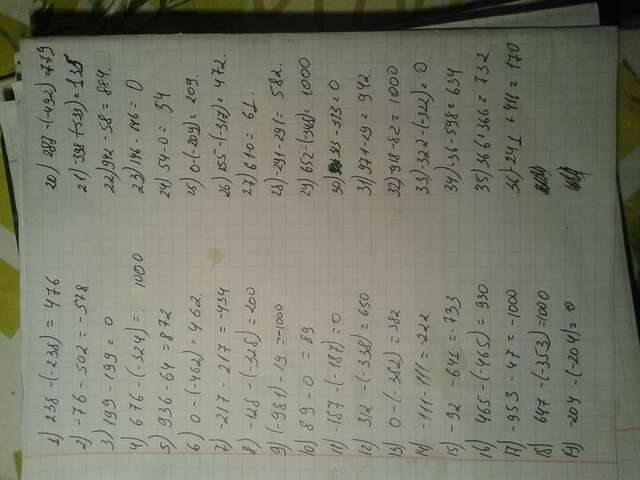 1) 238 - (-238) = 476
2) -76 - 502 = -578
3) 199 - 199 = 0
4) 676 - (-324) = 1000
5) 936 - 64 = 872
6) 0 - (-462) = 462
7) -217 - 217 = -434
8) -128 - (-328) = 200
9) (-981) - 19 = -1000
10) 89 - 0 = 89
11) -187 - (-187) = 0
12) 312 - (-338) = 650
13) 0 - (-382) = 382
14) -111 - 111 = -222
15) -92 - 641 = -733
16) 465 - (-465) = 930
17) -953 - 47 = -1000
18) 647 - (-353) = 1000
19) -204 - (-204) = 0
20) 287 - (-492) = 779
21) -398 - (-533) = 135
22) 942 - 58 = 884.
23) 146 - 146 = 0
24) 54 - 0 = 54
25) 0 - (-209) = 209.
26) 155 - (-317) = 472.
27) 61 - 0 = 61.
28) -291 - 291 = 582.
29) 652 - (-348) = 1000
30) - 313 = 0
31) 971 - 29 = 942.
32) -918 - 82 = 1000
33) -322 - (-322) = 0
34) -36 - 598 = 634
35) 366 + 366 = 732
36) -241 + 411 = 170